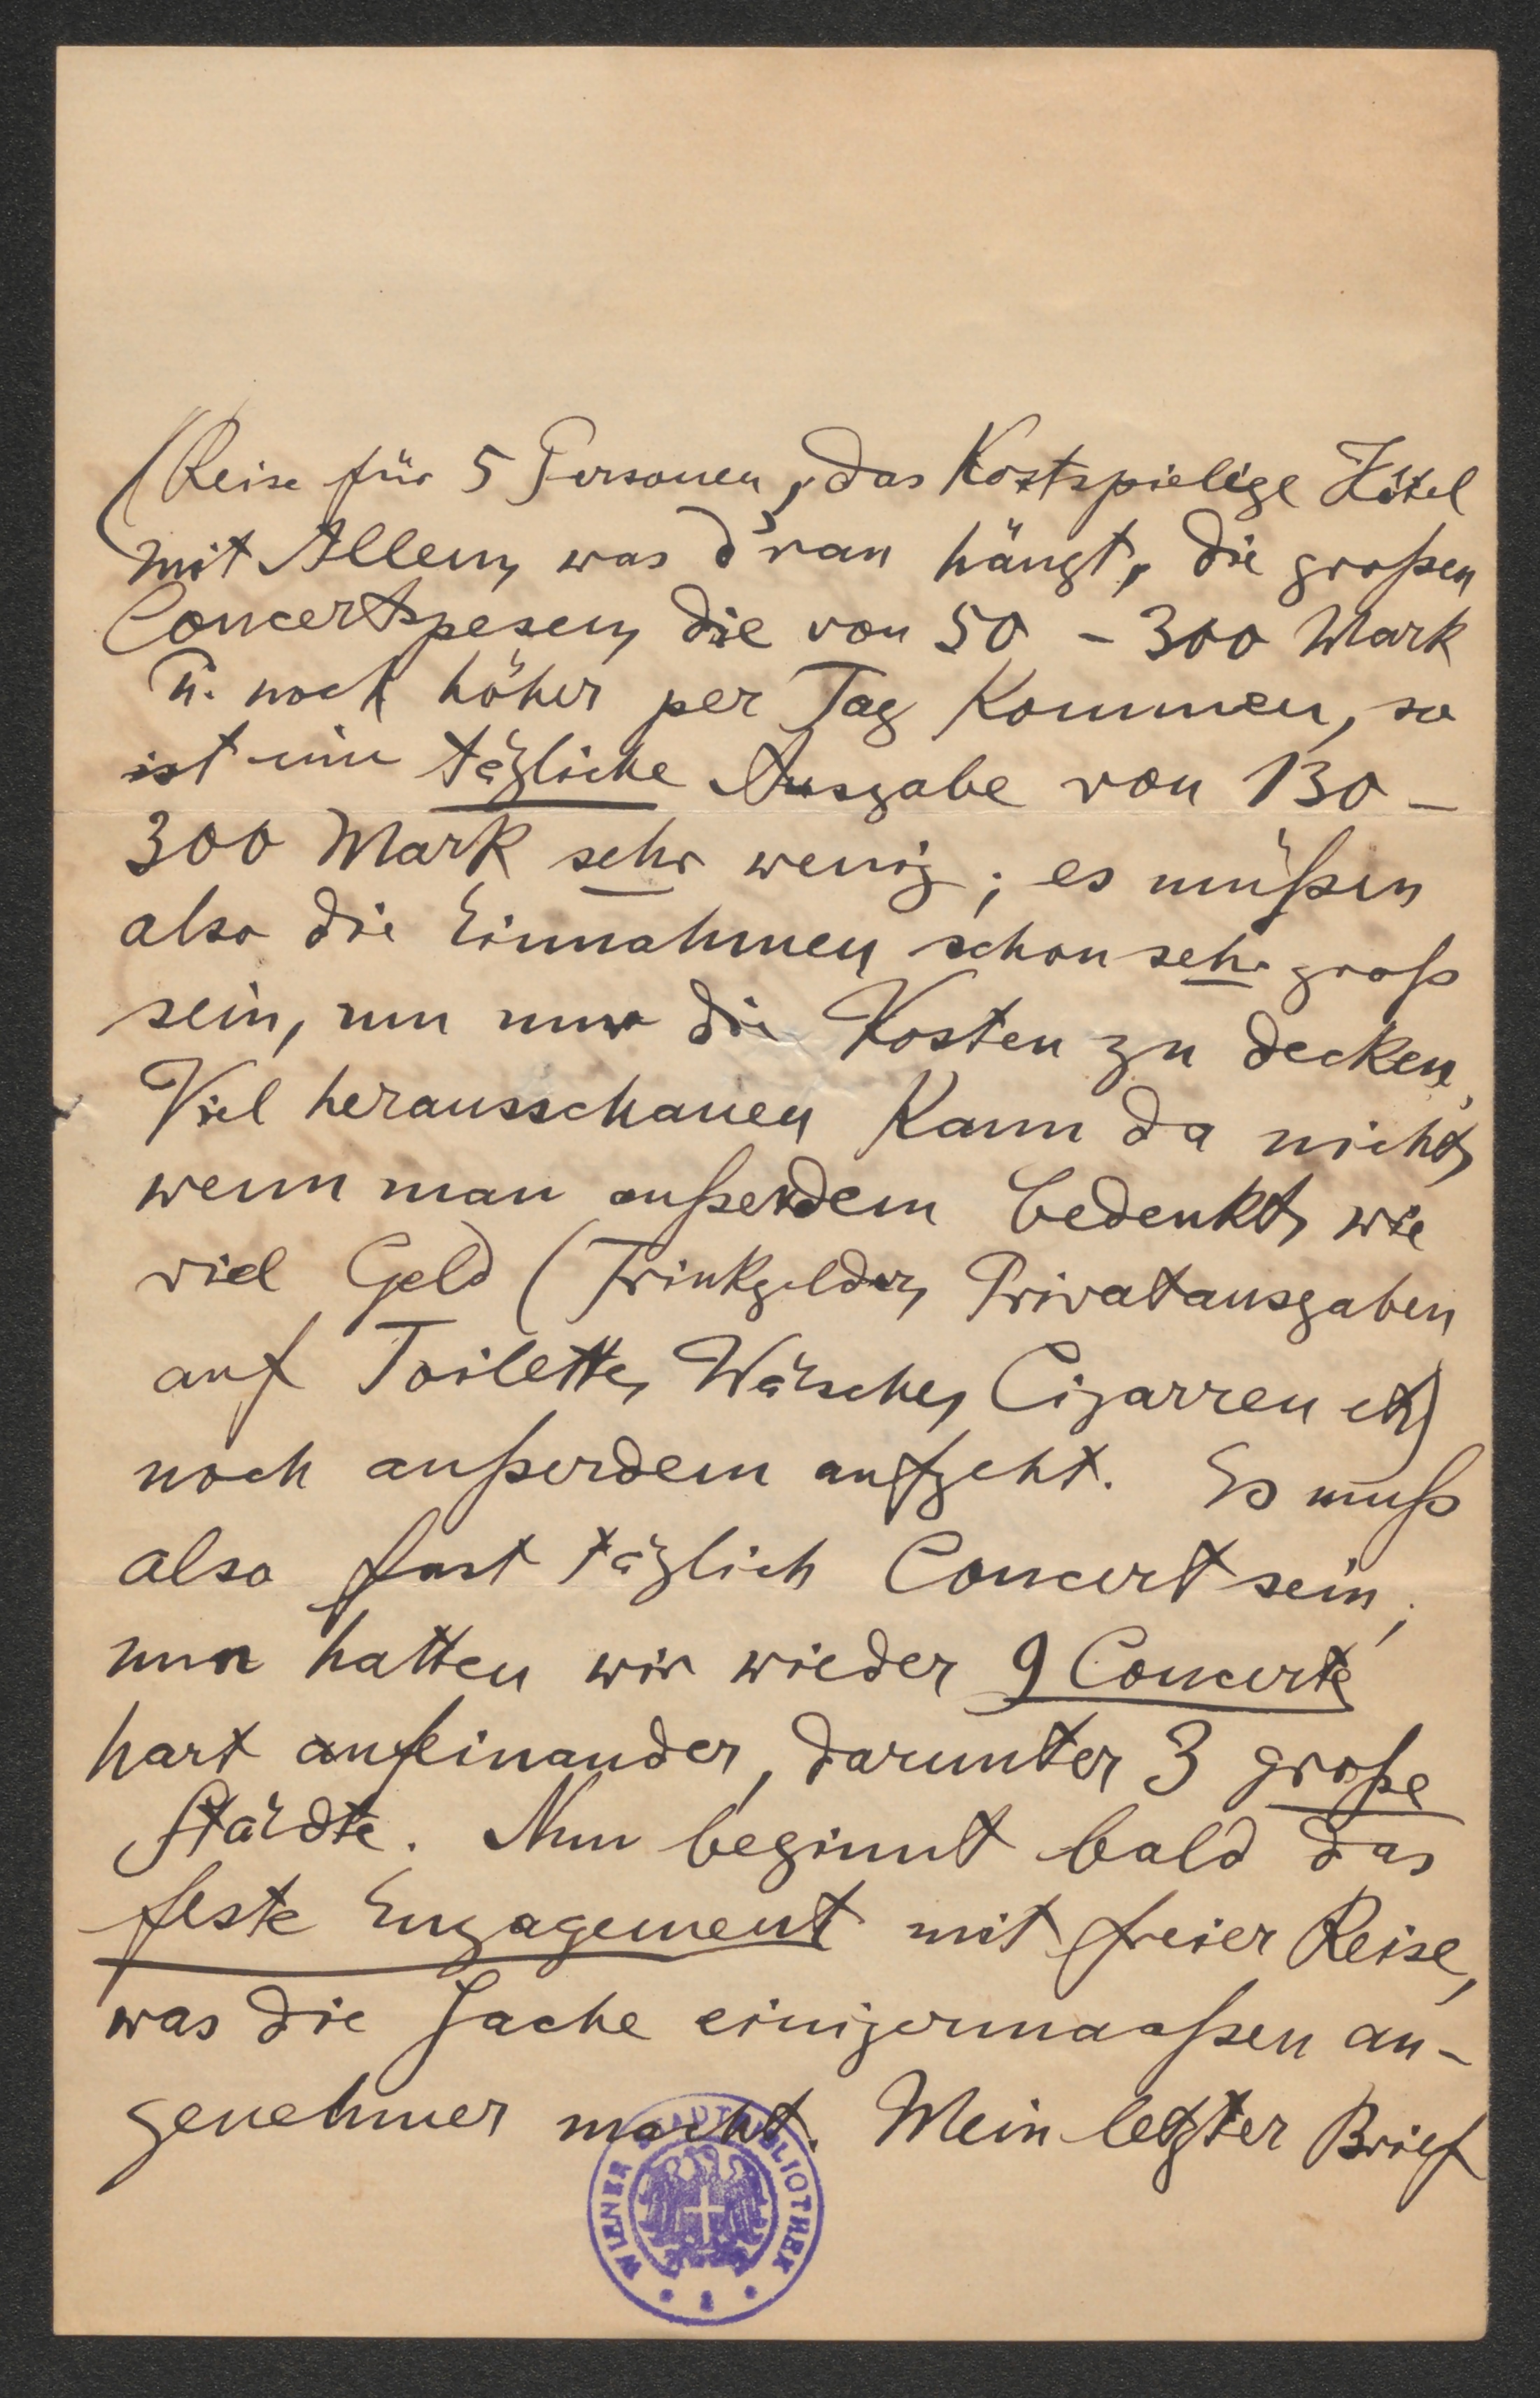 (Reise für 5 Personen, das Kostspielige Hôtel
mit Allem, was d'ran hängt, die großen
Concertspesen, die von 50 - 300 Mark
u. noch höher per Tag Kommen, so
ist eine tägliche Ausgabe von 130 -
300 Mark sehr wenig; es müßen
also die Einnahmen schon sehr groß
sein, um nur die Kosten zu decken,
Viel herausschauen Kann da nicht,
wenn man außerdem bedenkt, wie
viel Geld (Trinkgelder, Privatausgaben
auf Toilette, Wäsche, Cigarren etc)
noch außerdem aufgeht. Es muß
also fast täglich Concert sein;
nun hatten wir wieder 9 Concerte
hart aufeinander, darunter 3 große
Städte. Nun beginnt bald das
feste Engagement mit freier Reise,
was die Sache einigermaaßen an-
genehmer macht. Mein letzter Brief
WIENER STADTBIBLIOTHEK